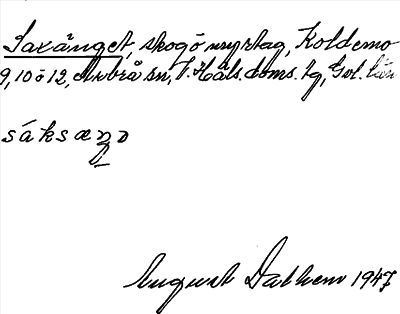 Saxänget, skog o nyrtag, Koldemo
9, 10 o 12, Arbrå sn, V. Häls. doms. tg, Gvl. län
sáksæŋə
August Dalhem 1947